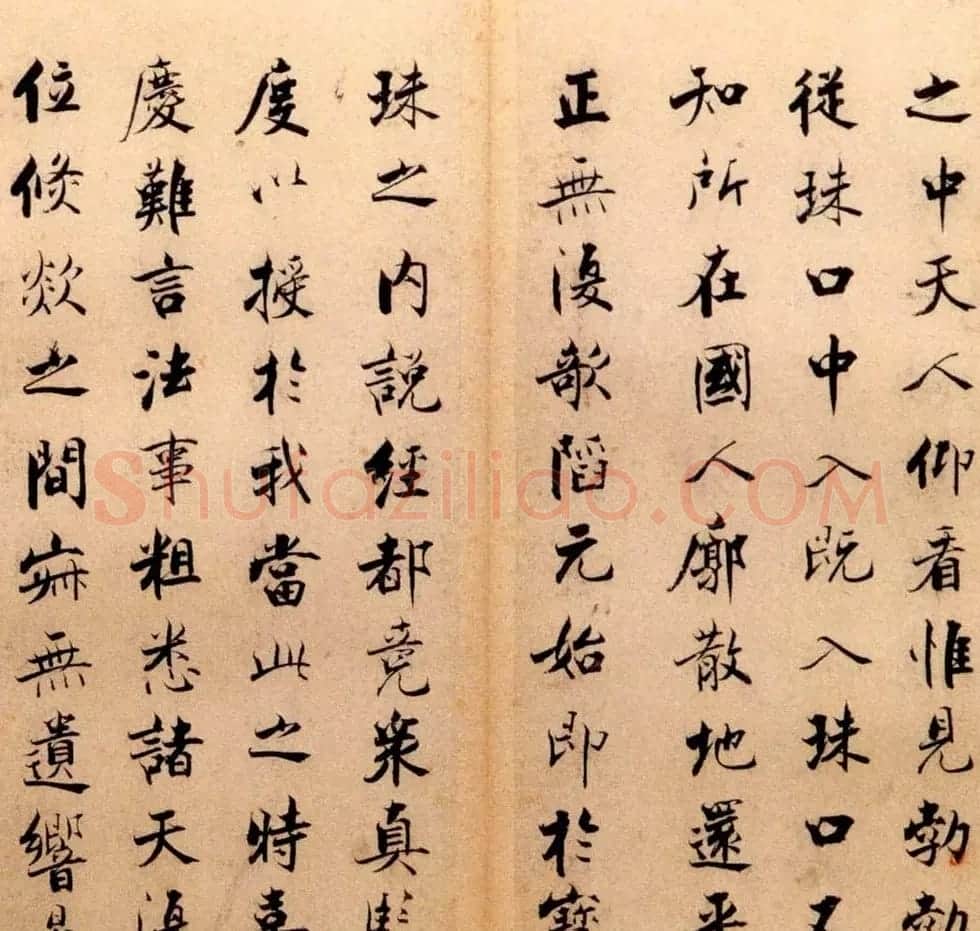 之中天人仰看惟見勃勃
從珠口中入既入珠口
知所在國人廓散地還平
正無復欹陷元始即於寶
珠之內說經都竟眾真
度以授於我當此之時喜
慶難言法事粗悉諸天復
位倏欻之間寂無遺響
Shufaziliao.COM